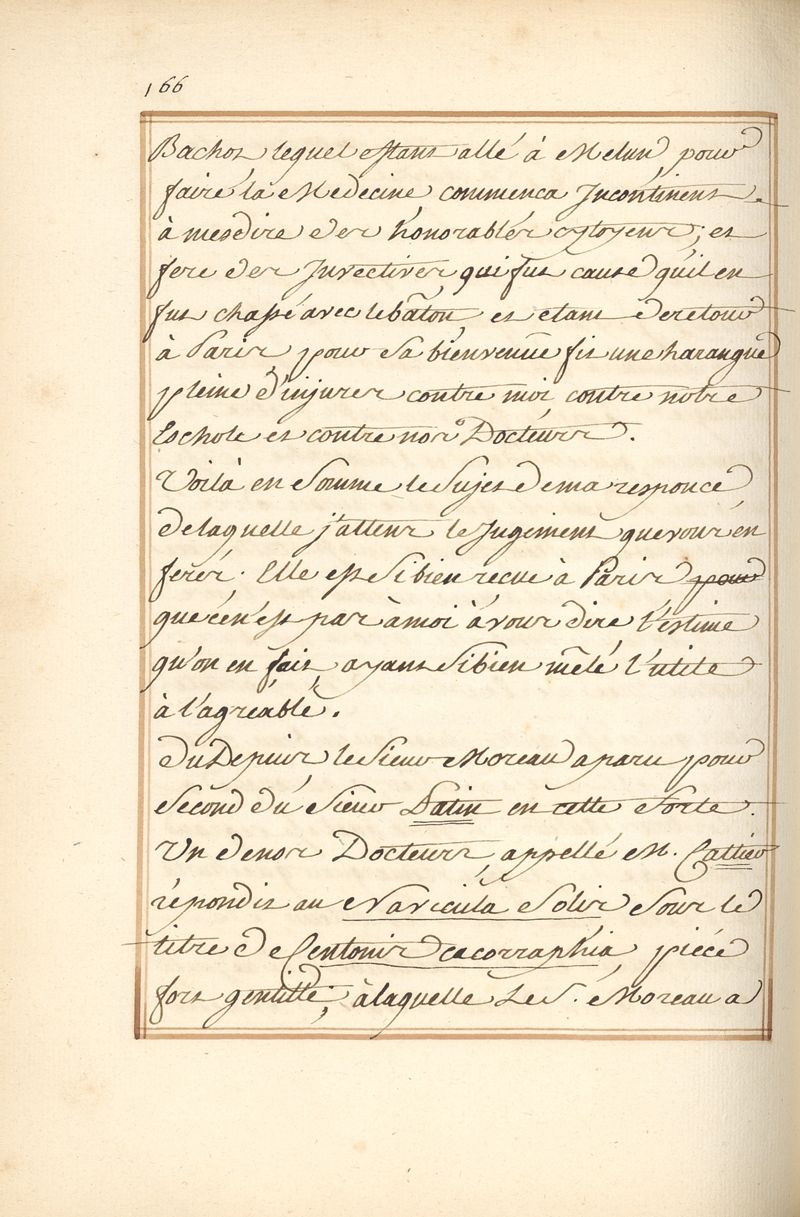 166
Bachot lequel estant allé à Melun pour
faire la Medecine commenca Incontinent
à mesdire des honorables cytoyens; et
fere des Invectives qui fut cause quil en
fut chassé avec le bâton, et etant deretour
à Paris pour sa bienvenüe fit une harangue
pleine d'injures contre moi contre notre
Eschole et contre nos Docteurs.
Voilà en somme le sujet dema responce
delaquelle j'attens le Jugement que vous en
ferés. Elle est sibien recue à Paris pour
que cen'est pas àmoi à vous dire l'estime
qu'on en fait, ayant sibien mêlé l'utile
à l'agréable.
du Depuis le sieur Moreau a paru pour
second du sieur Patin en cette sorte.
Un denos Docteurs, appellé M. Cattier
répondit au Navicula Solis sous le
titre de Centonis cacorraphia, piéce
fort gentille, à laquelle Le S. Moreau a